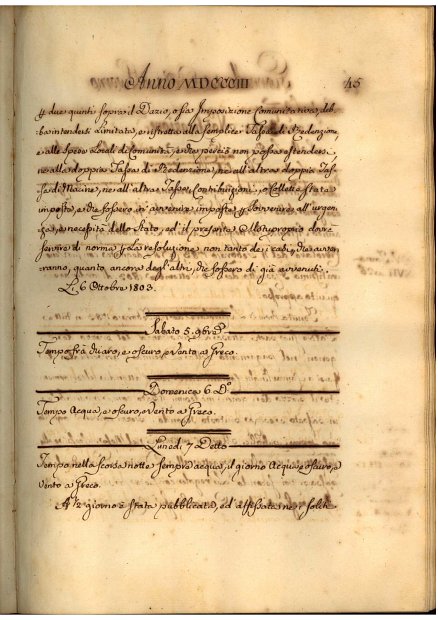 Anno MDCCCIII 45
due quinti sopra il Dazio, o sia Imposizione Comunitativa, deb-
ba intendersi limitata, e ristretta alla semplice Tassa di Redenzione,
e alle Spese Locali di Comunità, e che perciò non possa estendersi
ne alla doppia Tassa di Redenzione, ne all'altra doppia Tas-
sa di Macine, ne all'altre Tasse, Contribuzioni, o Collette state
imposte, e che fossero in avvenire imposte p sovvenire all'urgen-
za, e necessità dello Stato, ed il presente Motuproprio dovrà
servire di norma p la resoluzione non tanto dei casi, che avver-
ranno, quanto ancora degl'altri, che fossero di già avvenuti.
Li. 6 Ottobre 1803.
Sabato 5. 9bre
Tempo frà chiaro, e oscuro, e Vento a Greco.
Domenica 6 Do
Tempo Acqua, e oscuro, e Vento a Greco.
Lunedì 7 Detto
Tempo nella scorsa notte sempre acqua, il giorno Acqua e oscuro, e
Vento a Greco.
A ½ giorno è stata pubblicata, ed affissata ne i soliti